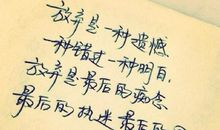 放弃是一种遗憾
一种错过一种明目,
放弃是最后的痴念
最后的执迷最后的